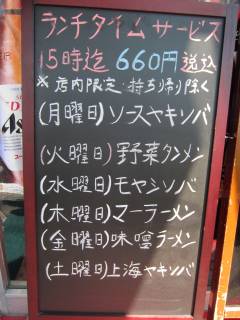 ランチタイムサービス
15時迄 660円税込
※店内限定・持ち帰り除く
(月曜日)ソースヤキソバ
(火曜日)野菜タンメン
(水曜日)モヤシソバ
(木曜日)マーラーメン
(金曜日)味噌ラーメン
(土曜日)上海ヤキソバ